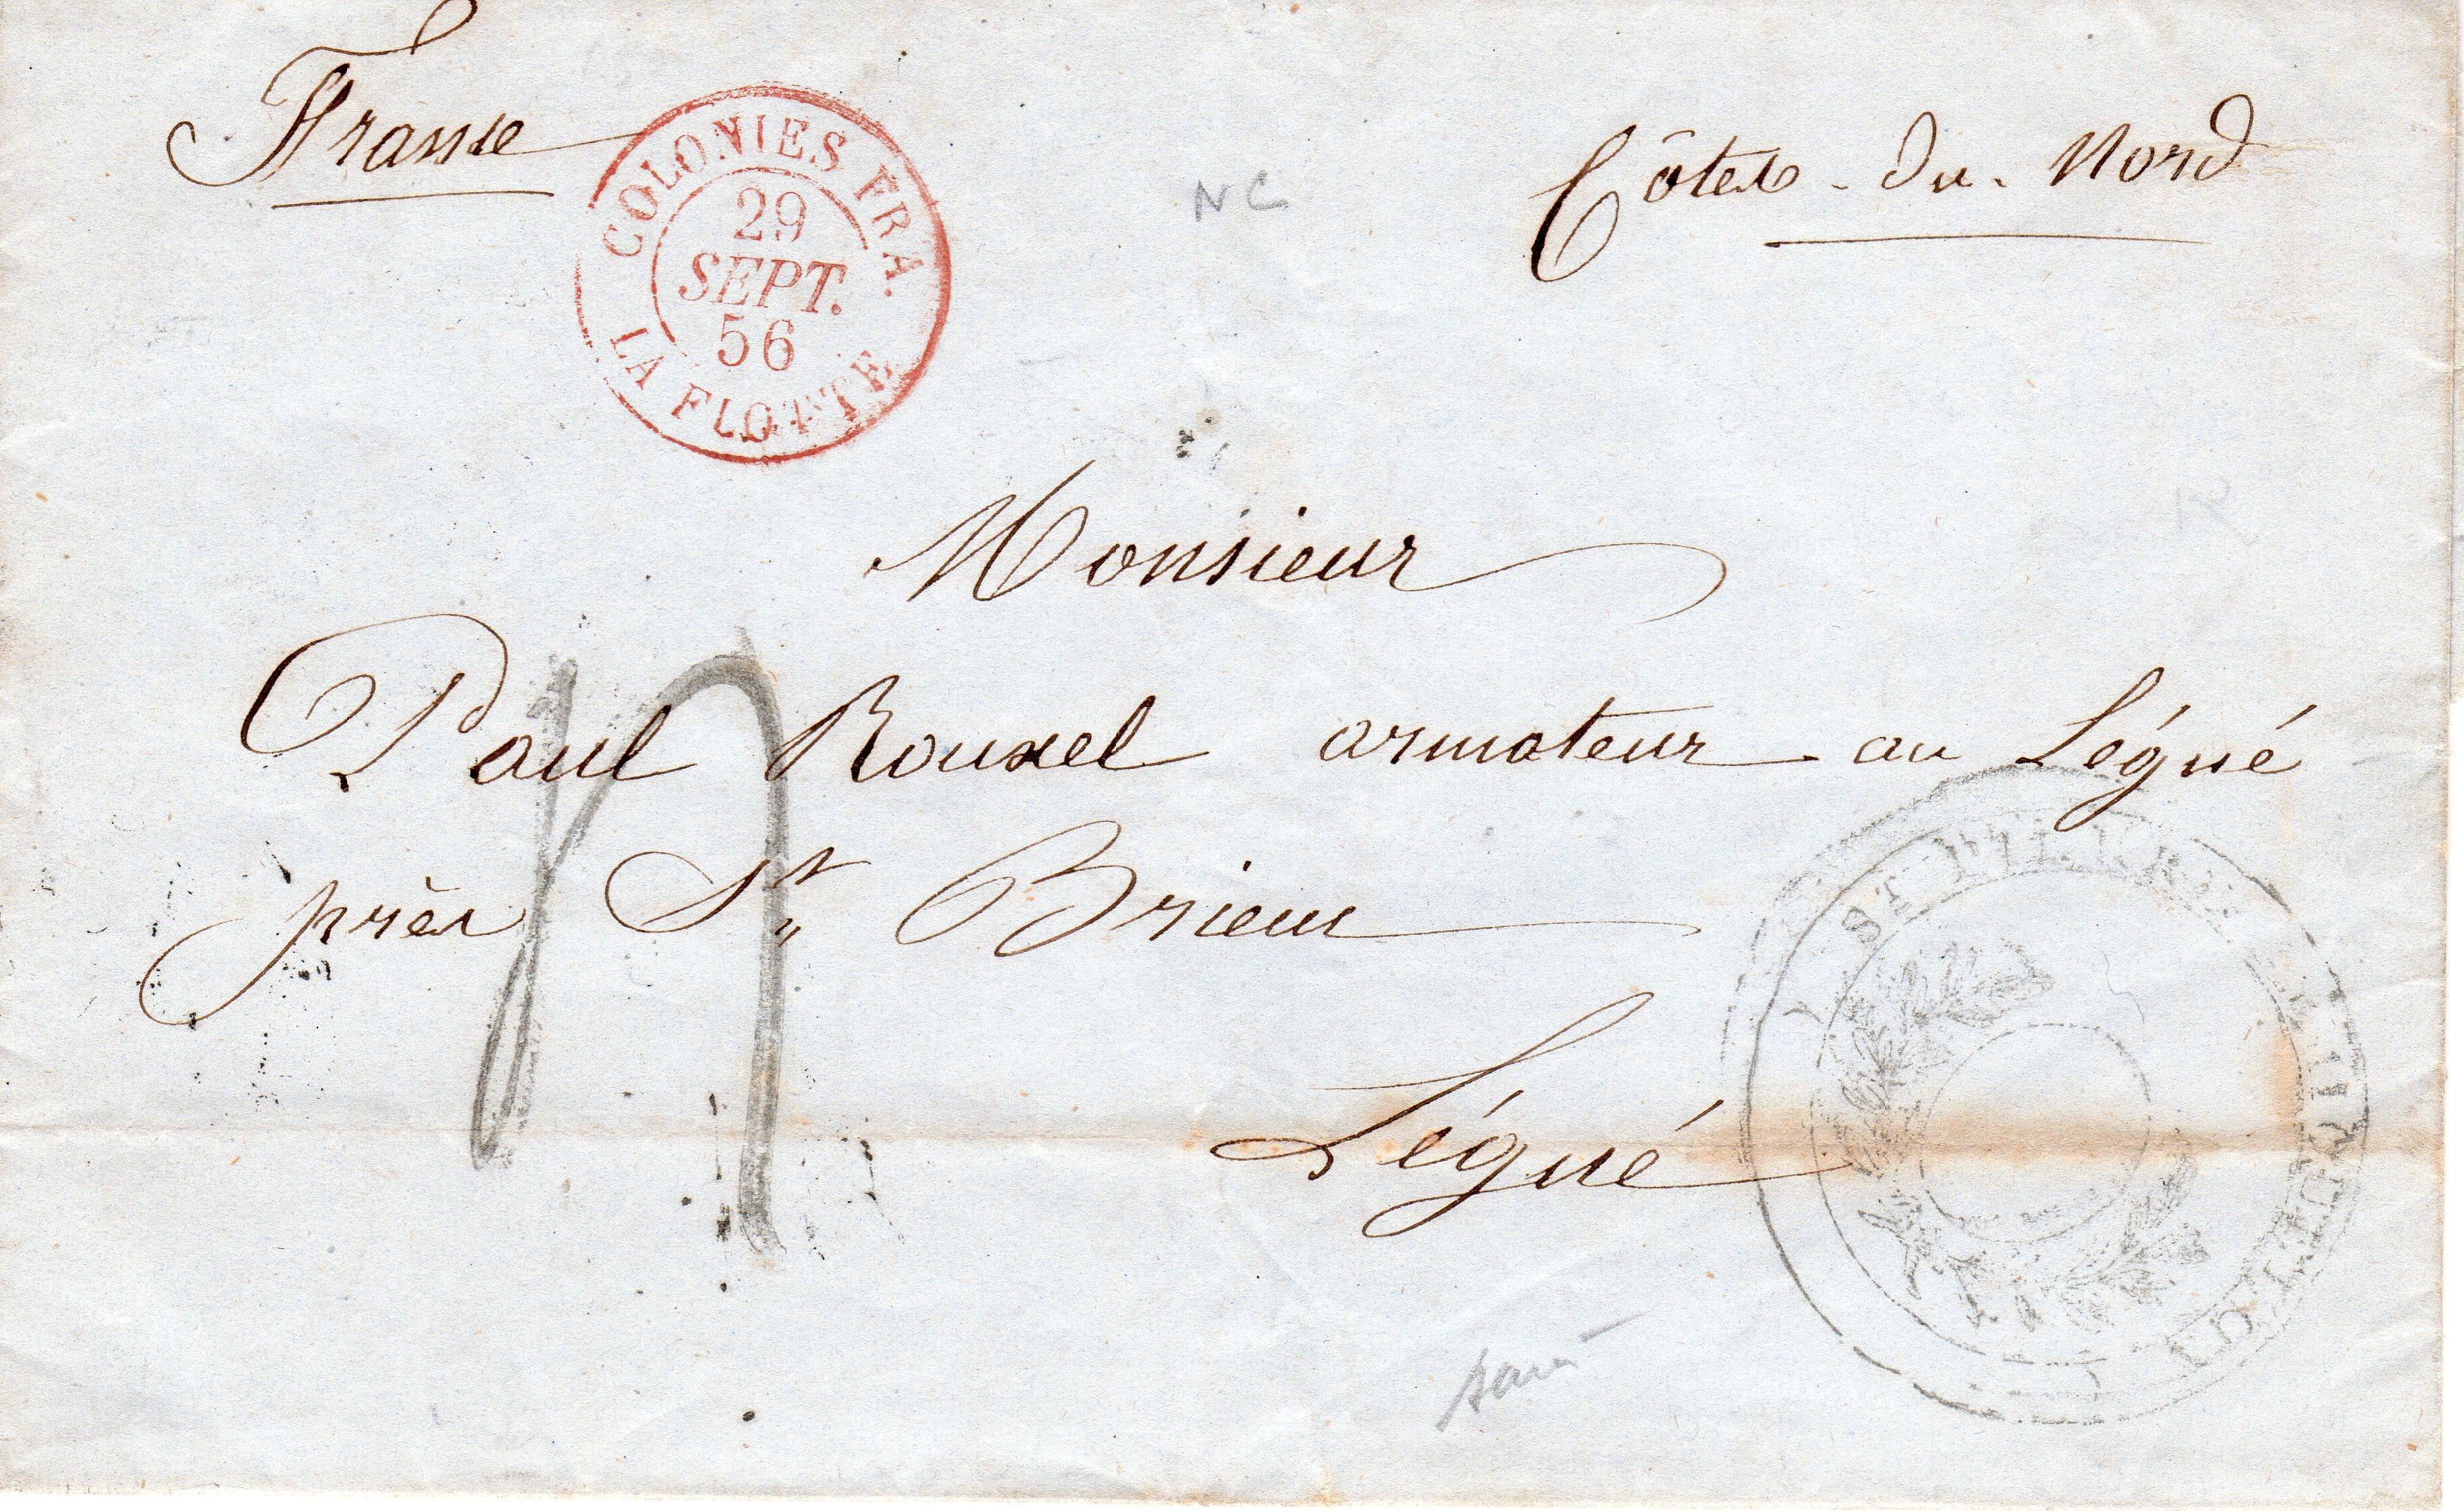 France
COLONIES FRA.
29
SEPT.
56
LA FLOTTE
NC
Côtes - du - Nord
Monsieur
Paul Rouxel armateur au Légué
près St Brieuc
Légué
ST PIERRE ET MIQUELON